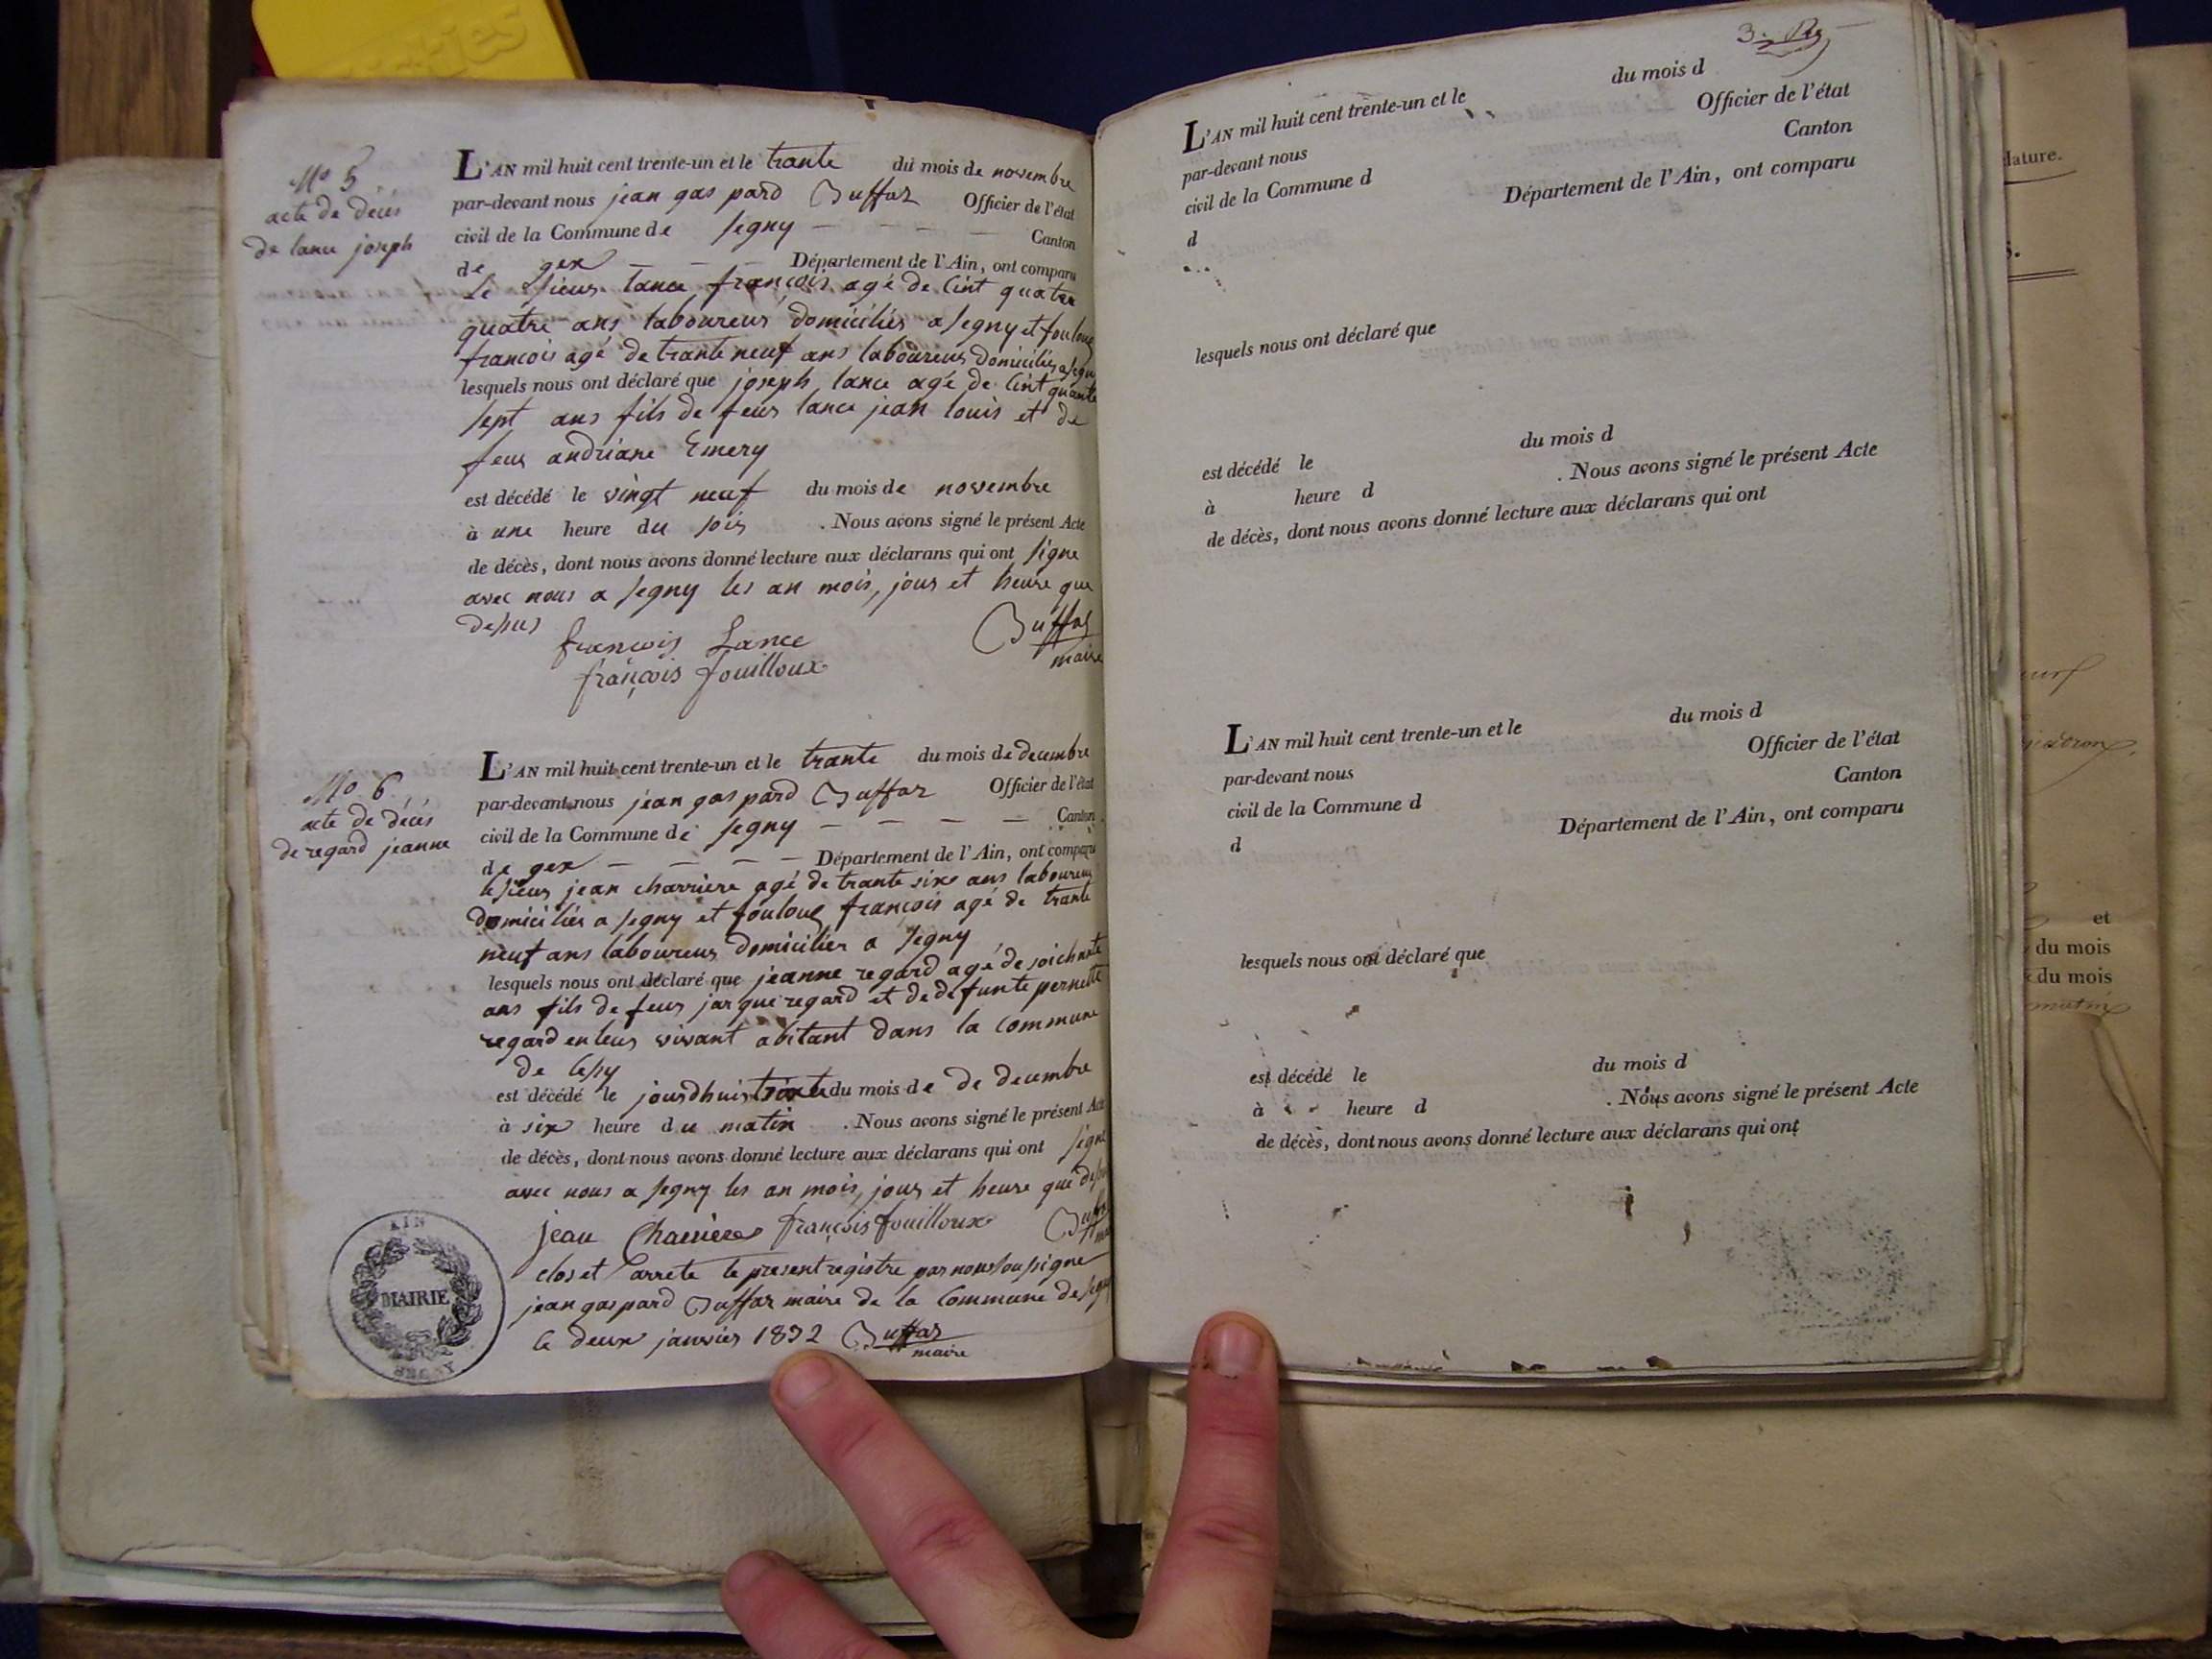 No 5
acte de décés
de lance joseph
L'AN mil huit cent trente-un et le trante du mois de novembre
par-devant nous jean gas pard Buffaz Officier de l'état
civil de la Commune de segny — — — — Canton
de gex — — — Département de l'Ain, ont comparu
le sieur lance françois agé de cint quatre
quatre ans laboureur domiciliés a segny et fouloux
francois agé de trante neuf ans laboureur domiciliés a segny
lesquels nous ont déclaré que joseph lance agé de cint quante
sept ans fils de feus lance jean louis et de
feus andriane Emery
est décédé le vingt neuf du mois de novembre
à une heure du soir . Nous avons signé le présent Acte
de décès, dont nous avons donné lecture aux déclarans qui ont signe
avec nous a segny les an mois, jour et heure que
desus
francois Lance
françois fouilloux
Buffaz
maire
No 6
acte de décés
de regard jeanne
L'AN mil huit cent trente-un et le trante du mois de decembre
par-devant nous jean gas pard Buffaz Officier de l'état
civil de la Commune de segny — — — — Canton
de gex — — — — Département de l'Ain, ont comparu
le sieur jean charriere agé de trante six ans laboureur
domiciliés a segny et fouloux françois agé de trante
neuf ans laboureur domicilier a segny
lesquels nous ont déclaré que jeanne regard agé de soichnte
ans fils de feus jarque regard et de defunte pernette
regard en leur vivant abitant dans la commune
de cessy
est décédé le jourdhuis trante du mois de de decembre
à six heure du matin . Nous avons signé le présent Acte
de décès, dont nous avons donné lecture aux déclarans qui ont signé
avec nous a segny les an mois, jour et heure que desus
jean Charriere françois fouilloux Buffaz
clos et arrete le present registre par nous sousigne
jean gaspard Buffaz maire de la Commune de segny
le deux janvier 1832 Buffaz
maire
AIN
MAIRIE
SEGNY
L'AN mil huit cent trente-un et le du mois d
par-devant nous Officier de l'état
civil de la Commune d Canton
d Département de l'Ain, ont comparu
lesquels nous ont déclaré que
est décédé le du mois d
à heure d . Nous avons signé le présent Acte
de décès, dont nous avons donné lecture aux déclarans qui ont
L'AN mil huit cent trente-un et le du mois d
par-devant nous Officier de l'état
civil de la Commune d Canton
d Département de l'Ain, ont comparu
lesquels nous ont déclaré que
est décédé le du mois d
à heure d . Nous avons signé le présent Acte
de décès, dont nous avons donné lecture aux déclarans qui ont
et
du mois
du mois